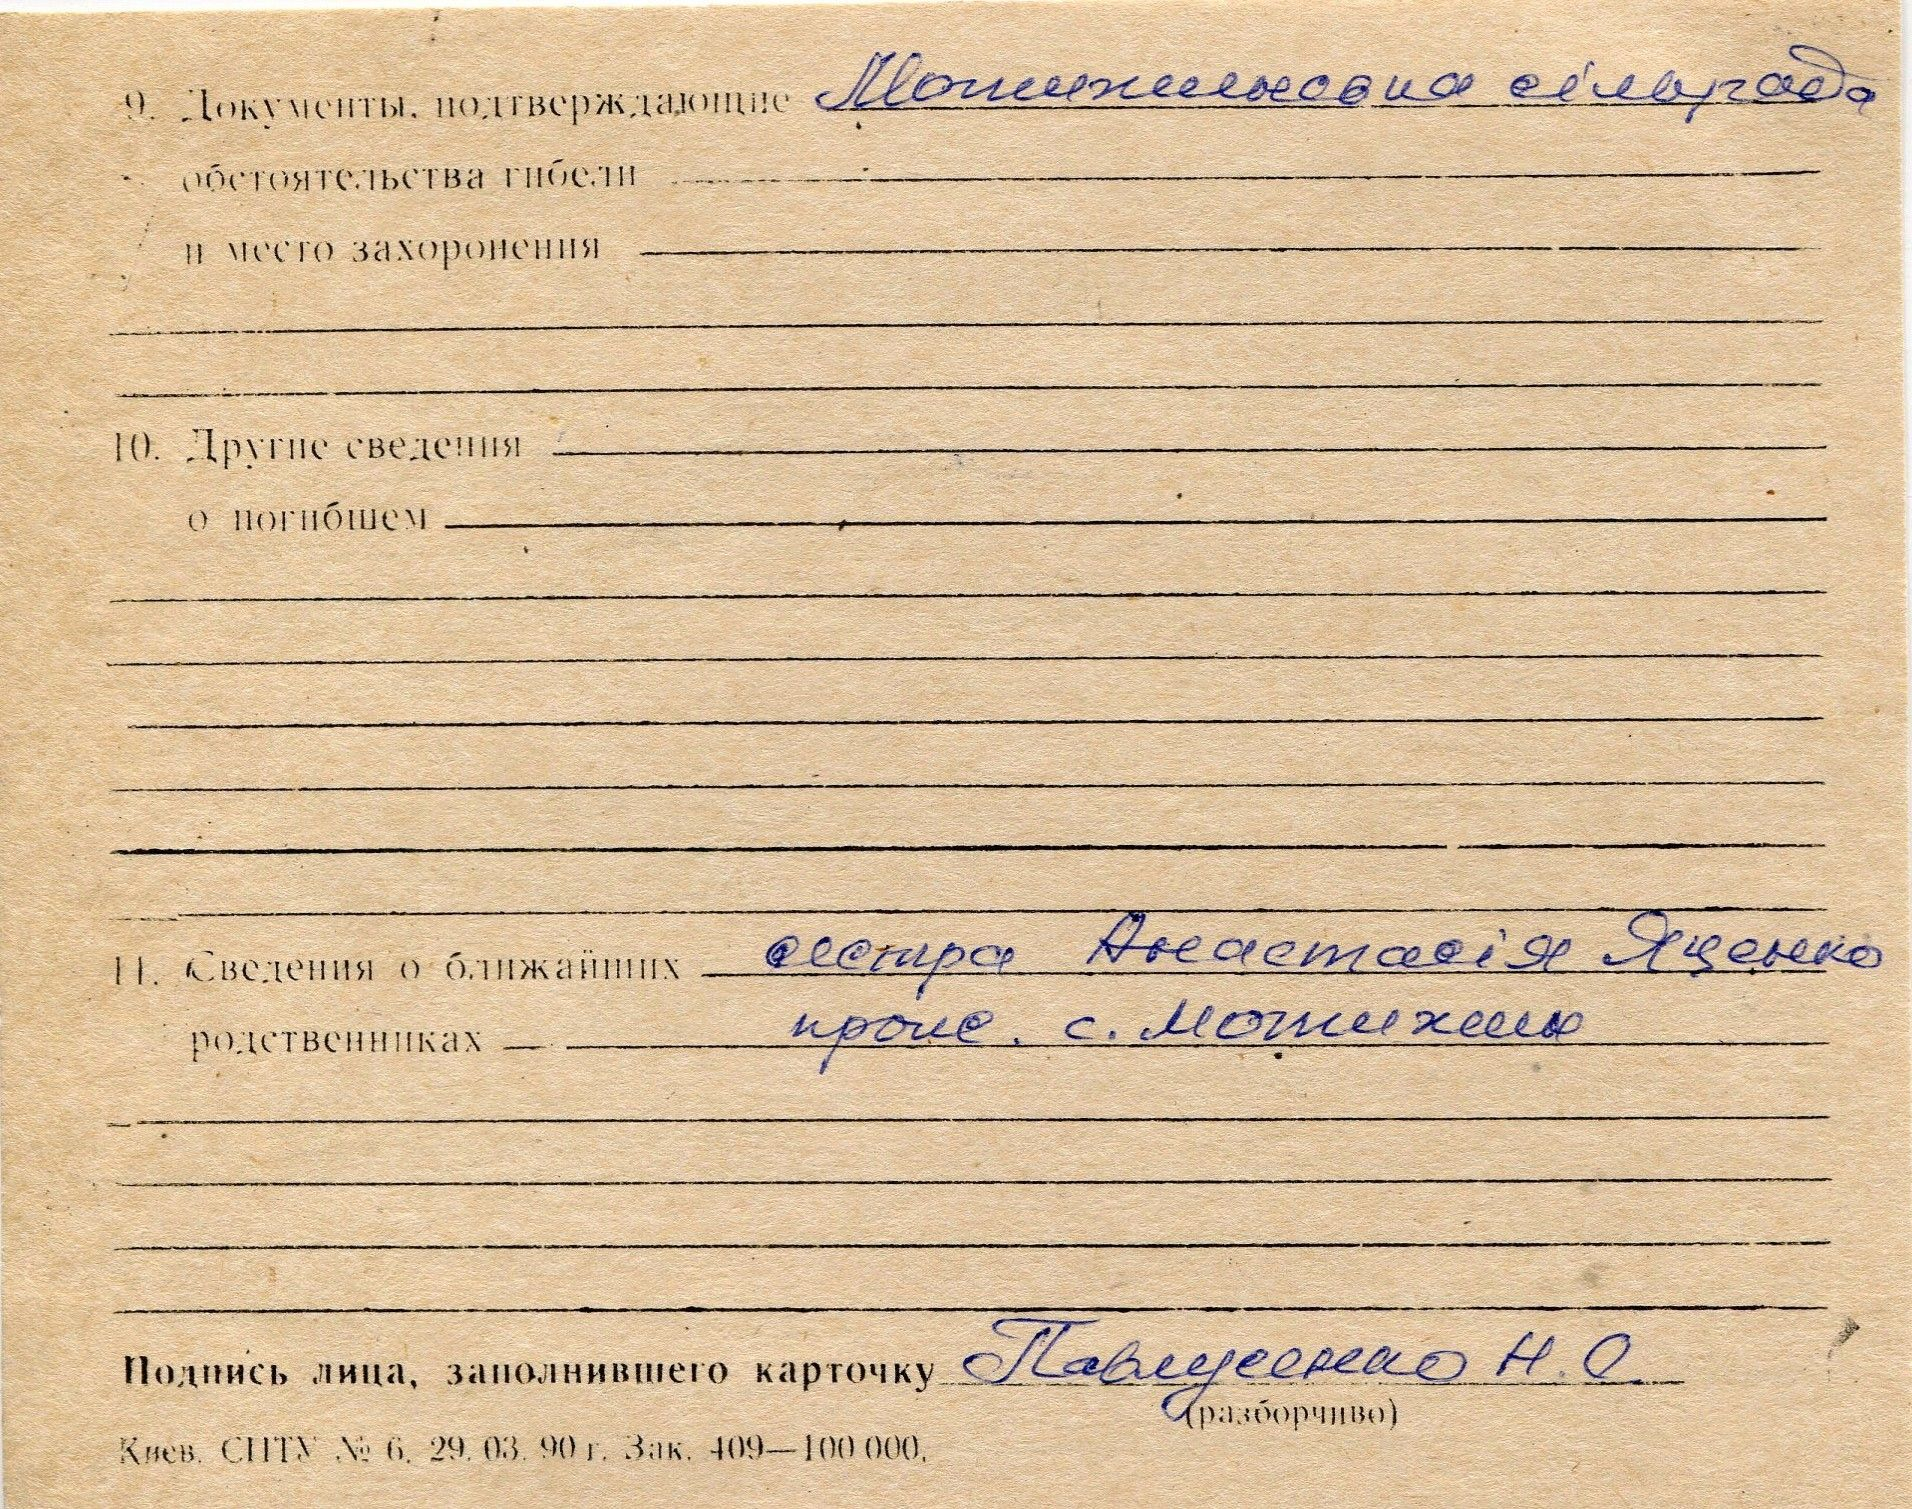 9. Документы, подтверждающие Мотижинська сільрада
обстоятельства гибели
и место захоронения
10. Другие сведения
о погибшем
11. Сведения о ближайших сестра Анастасія Яценко
родственниках прож. с. Мотижин
Подпись лица, заполнившего карточку Павлусенко Н. О.
(разборчиво)
Киев. СПТУ № 6. 29. 03. 90 г. Зак. 409—100 000.